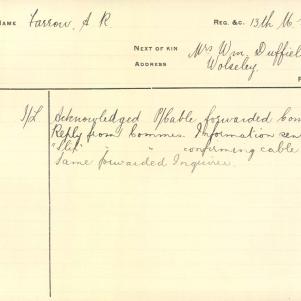 NAME Farrow, A. R. REG. &C. 13th M
NEXT OF KIN Mrs Wm. Duffiel
ADDRESS Wolseley.
I/L Acknowledged O/Cable forwarded Com
Reply from Commes. Information sen
"Slip" " " confirming cable
Same forwarded Inquirer.